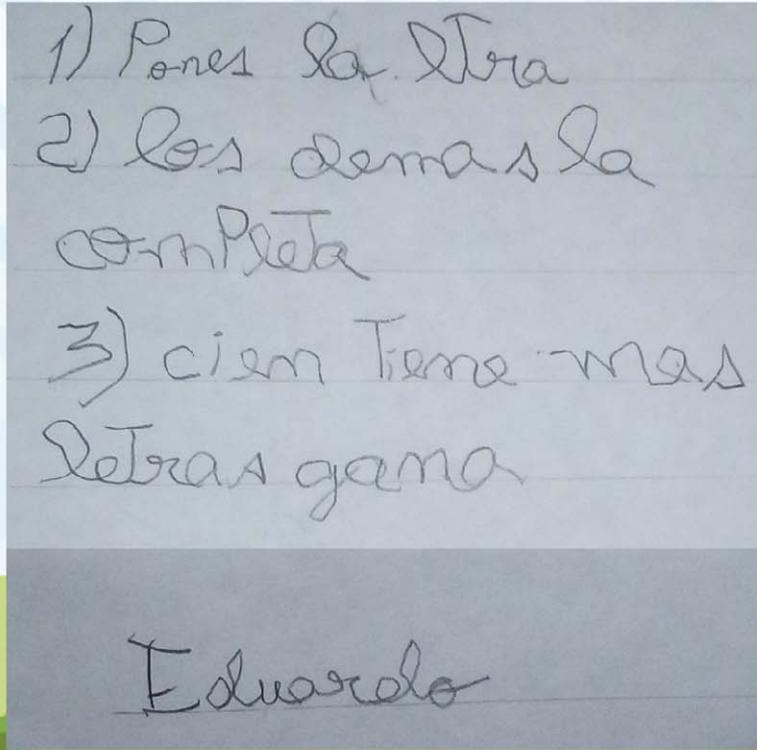 1) Pones la ltra
2) los demas la
completa
3) cien Tiene mas
letras gana
Eduardo